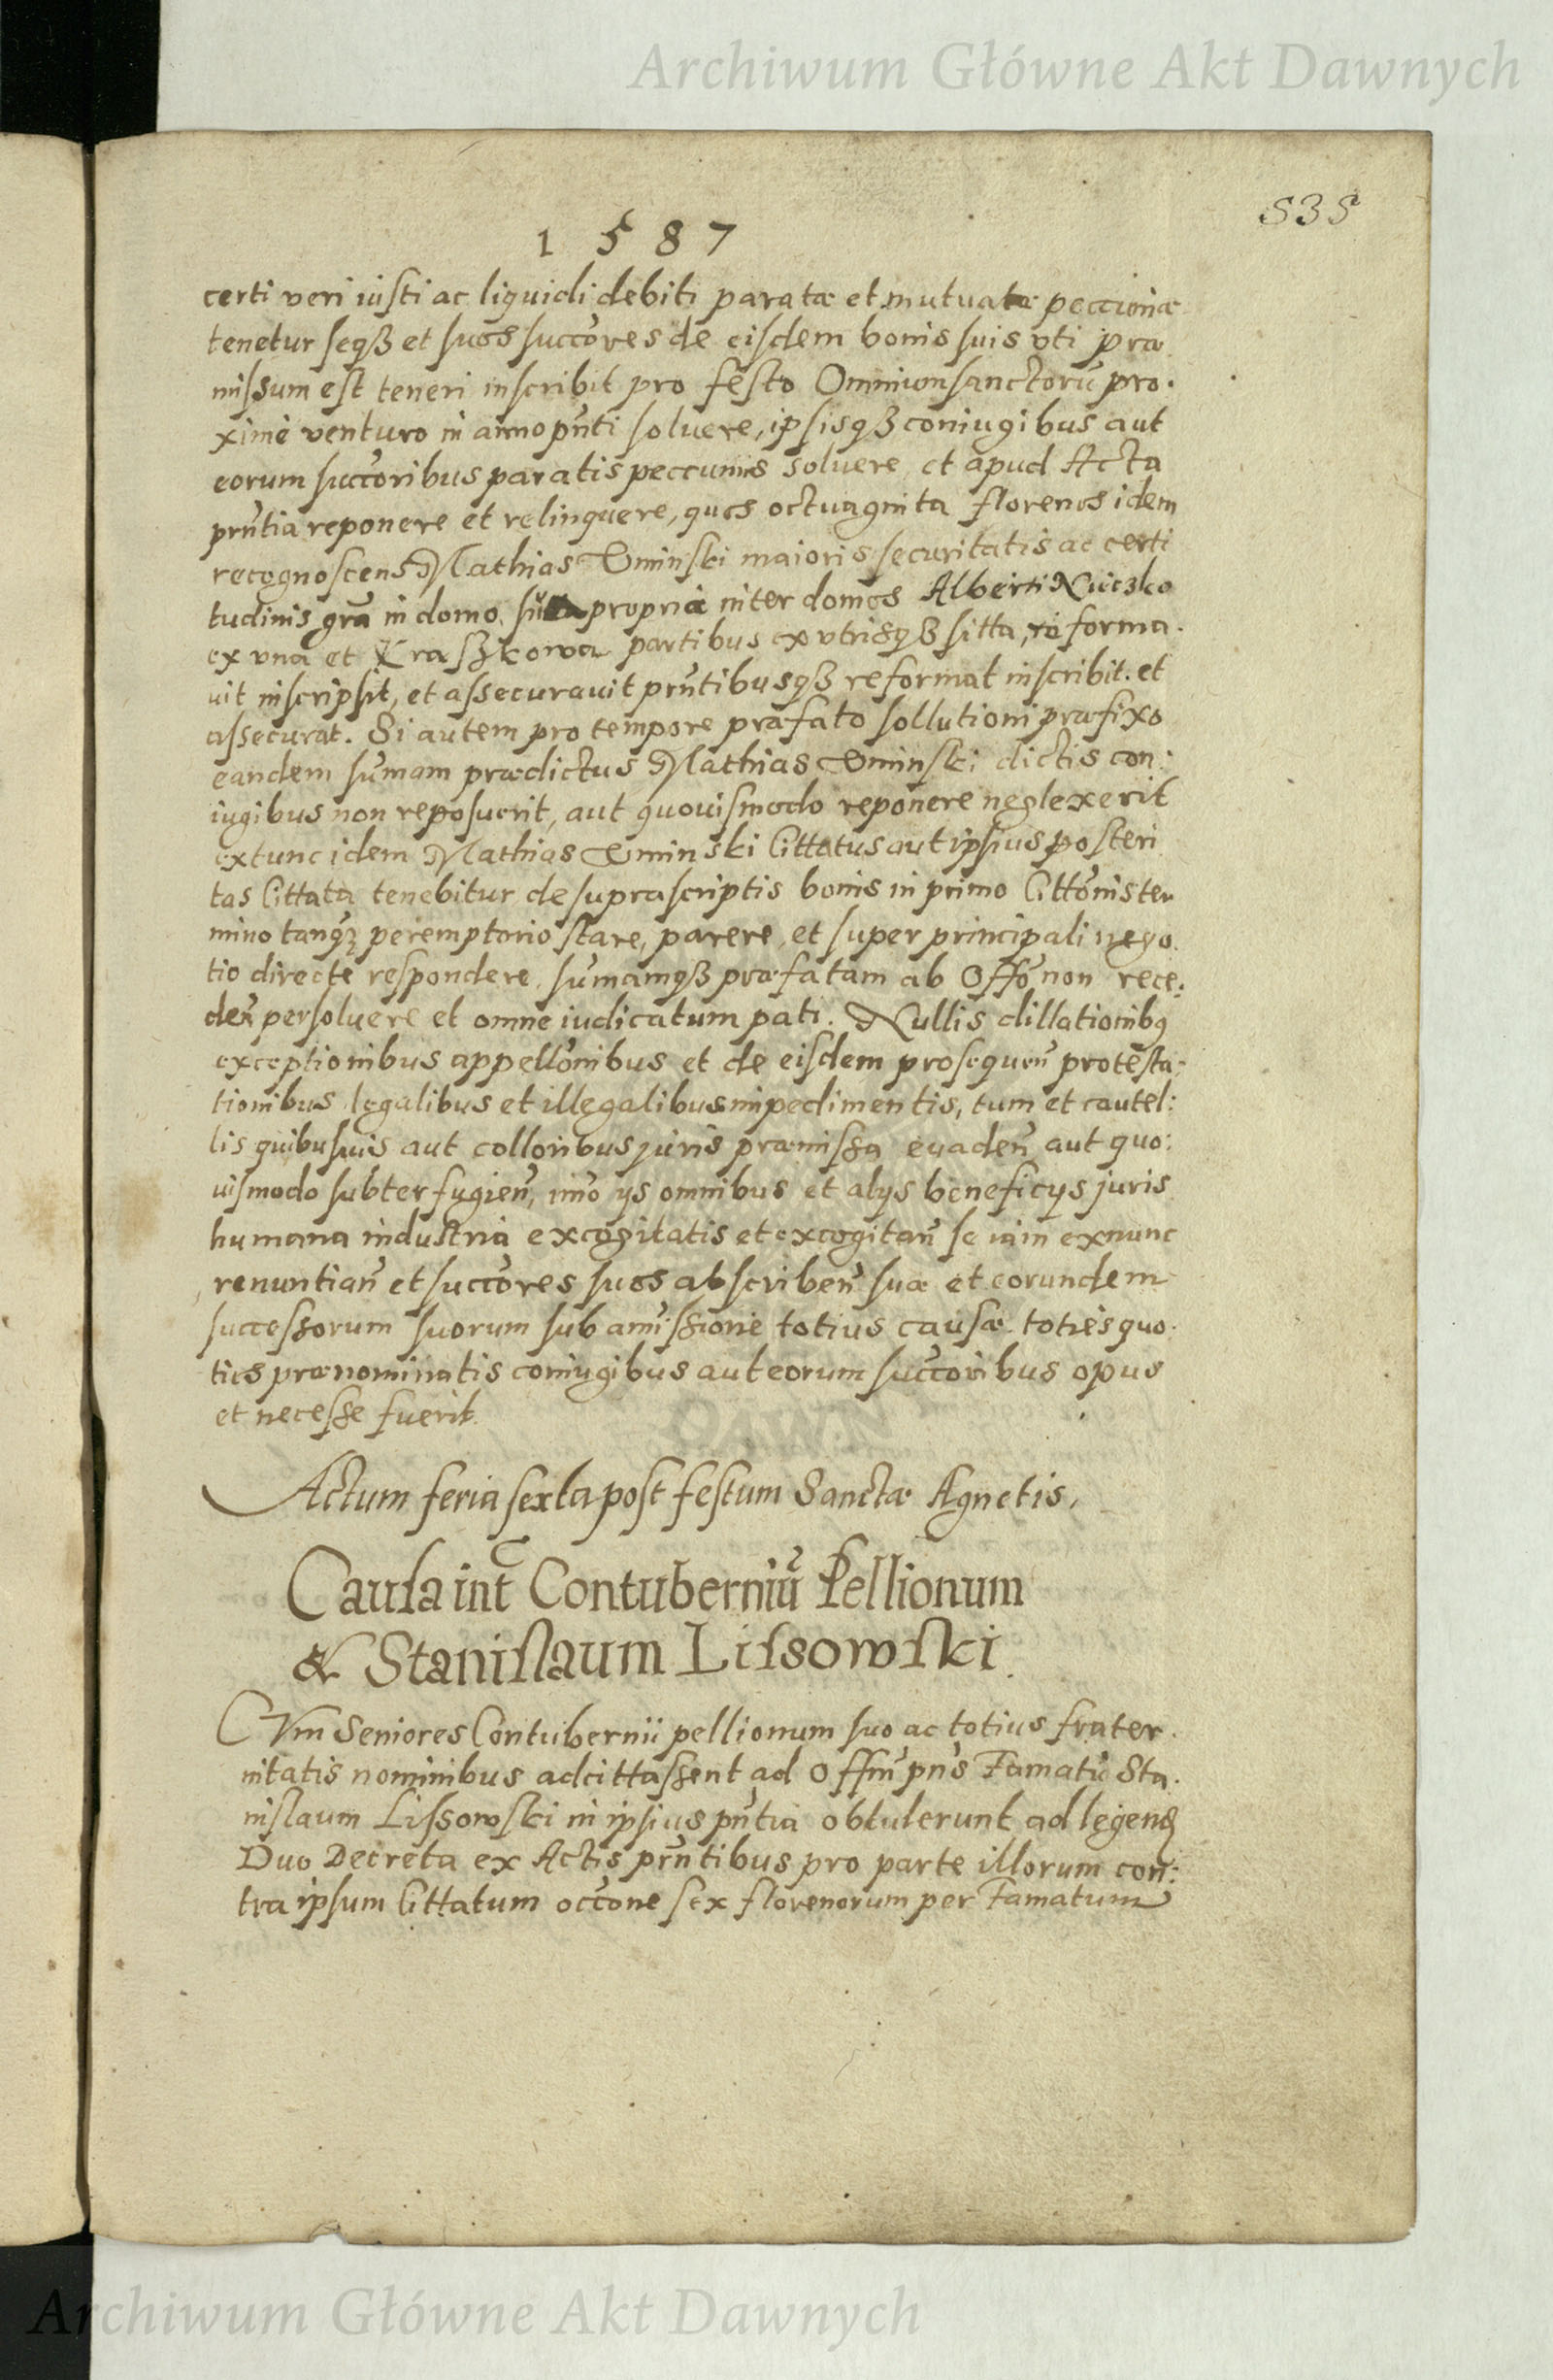 Archiwum Główne Akt Dawnych
535
1 5 8 7
certi veri iusti ac liquidi debiti paratæ et mutuatæ peccuniæ
tenetur seqȝ et suos succõres de eisdem bonis suis vti præ
missum est teneri inscribit pro festo Omnium sanctorũ pro.
xime venturo in anno pñti soluere, ipsisqȝ coniugibus aut
eorum succõribus paratis peccuniis soluere et apud Acta
prñtia reponere et relinquere, quos octuaginta florenos idem
recognoscens Mathias Uminski maioris securitatis ac certi
tudinis grã in domo sua propria inter domos Alberti Nuiczko
ex vna et Kraszkowa partibus ex vtrisqȝ sitta, reforma.
uit inscripsit, et assecurauit prñtibusqȝ reformat inscribit. et
assecurat. Si autem pro tempore præfato sollutioni præfixo
eandem sũmam prædictus Mathias Uminski dictis con:
iugibus non reposuerit, aut quouismodo reponere neglexerit
extunc idem Mathias Uminski Cittatus aut ipsius posteri
tas Cittata tenebitur de suprascriptis bonis in primo Cittõnis ter
mino tanqȝ peremptorio stare, parere, et super principali nego.
tio directe respondere, sũmamqȝ præfatam ab Offõ non rece:
deñ persoluere et omne iudicatum pati. Nullis dillationibꝯ
exceptionibus appellõnibus et de eisdem prosequeñ protesta:
tionibus legalibus et illegalibus impedimentis, tum et cautel:
lis quibusuis aut colloribus juris præmissa euadeñ aut quo:
uismodo subterfugieñ, imõ ijs omnibus et alijs beneficijs juris
humana industria excogitatis et excogitañ se iam exnunc
renuntiañ et succõres suos abscribeñ suæ et eorundem
successorum suorum sub amissione totius causæ toties quo.
ties prænominatis coniugibus aut eorum succõribus opus
et necesse fuerit.
Actum feria sexta post festum Sanctæ Agnetis,
Causa int Contuberniũ Pellionum
& Stanislaum Lissowski.
CVm Seniores Contubernii pellionum suo ac totius frater.
nitatis nominibus adcittassent ad Offm̃ pñs Famatũ Sta.
nislaum Lissowski in ipsius pñtia obtulerunt ad legend
Duo Decreta ex Actis prñtibus pro parte illorum con:
tra ipsum Cittatum occõne sex florenorum per Famatum
Archiwum Główne Akt Dawnych